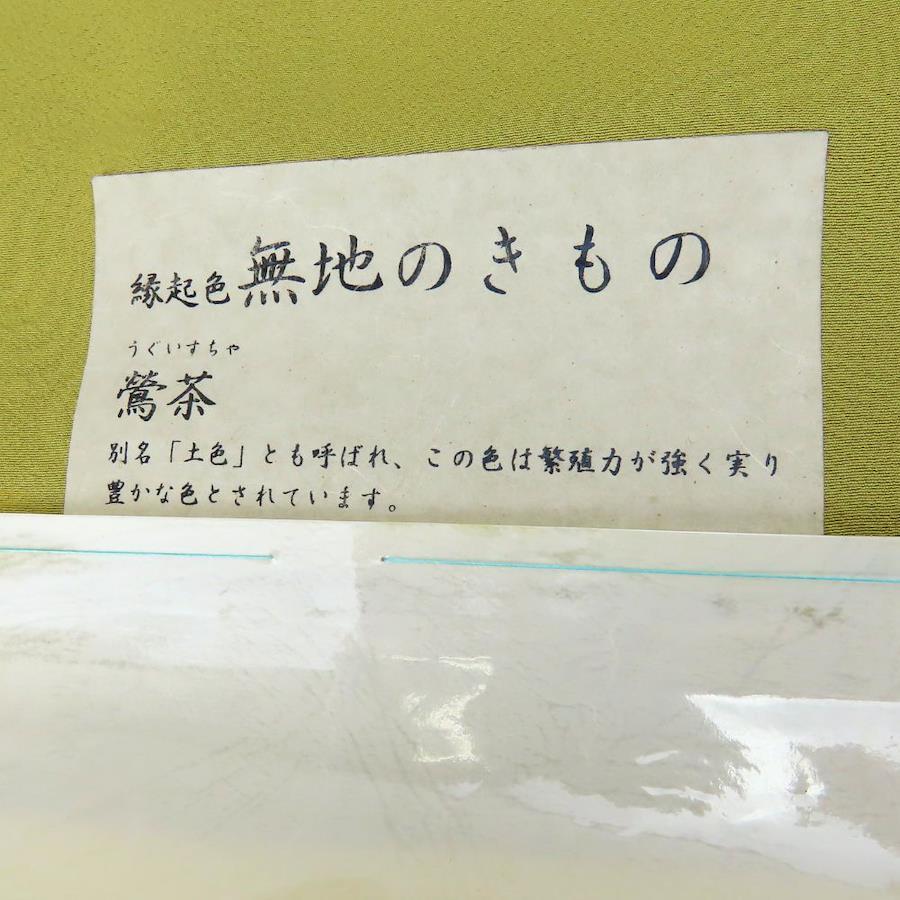 縁起色無地のきもの
うぐいすちゃ
鶯茶
別名「土色」とも呼ばれ、この色は繁殖力が強く実り
豊かな色とされています。